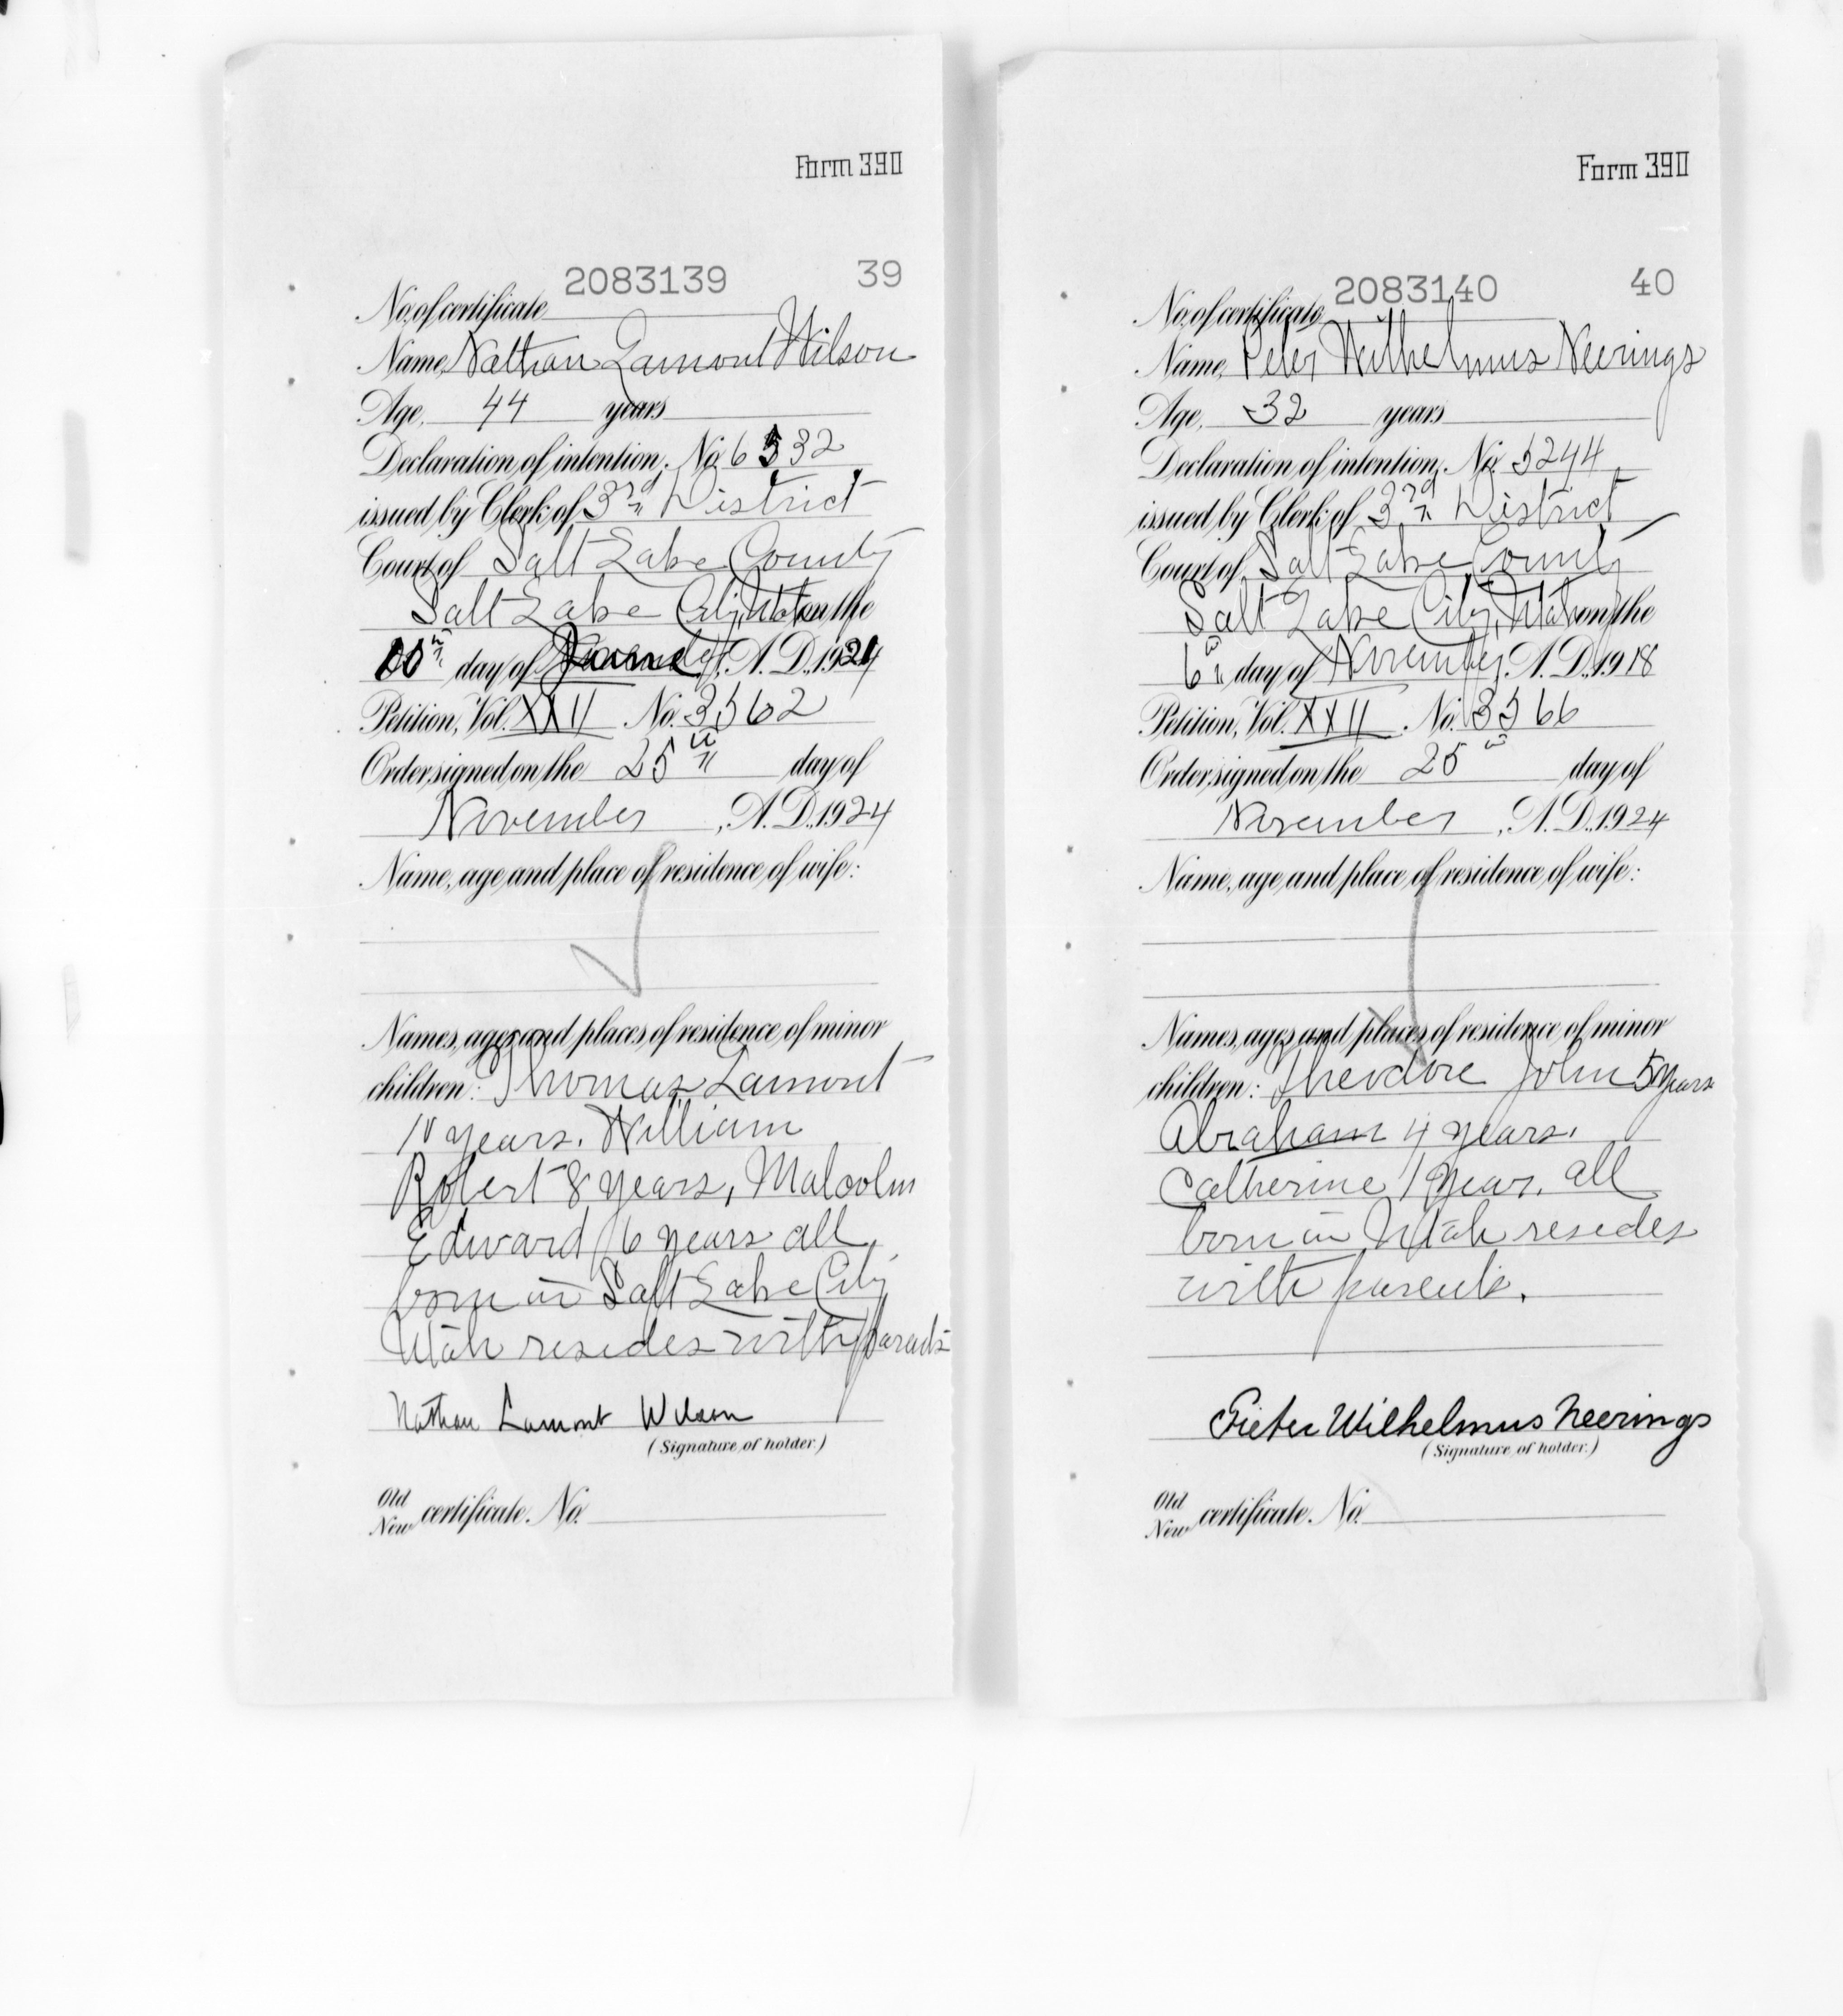 Form 390
2083139 39
No. of certificate
Name, Nathan Lamont Wilson
Age, 44 years
Declaration of intention, No. 6532
issued by Clerk of 3rd District
Court of Salt Lake County
Salt Lake City, Utah on the
day of A. D., 192
Petition, Vol. XXII No. 3562
Order signed on the 25th day of
November, A. D., 1924
Name, age and place of residence of wife:
Names, ages and places of residence of minor
children: Thomas Lamont
years. William
Robert 8 years, Malcolm
Edward 6 years all
born in Salt Lake City
Utah resides with parents
Nathan Lamont Wilson
(Signature of holder.)
Old
New certificate No.
Form 390
2083140 40
No. of certificate
Name, Peter Wilhelmus Neerings
Age, 32 years
Declaration of intention, No. 5244
issued by Clerk of 3rd District
Court of Salt Lake County
Salt Lake City, Utah on the
6th day of November, A. D., 1918
Petition, Vol. XXII. No. 3566
Order signed on the 25th day of
November, A. D., 1924
Name, age and place of residence of wife:
Names, ages and places of residence of minor
children: Theodore John 5 years
Abraham 4 years.
Catherine 1 year. all
born in Utah resides
with parents.
Pieter Wilhelmus Neerings
(Signature of holder.)
Old
New certificate No.